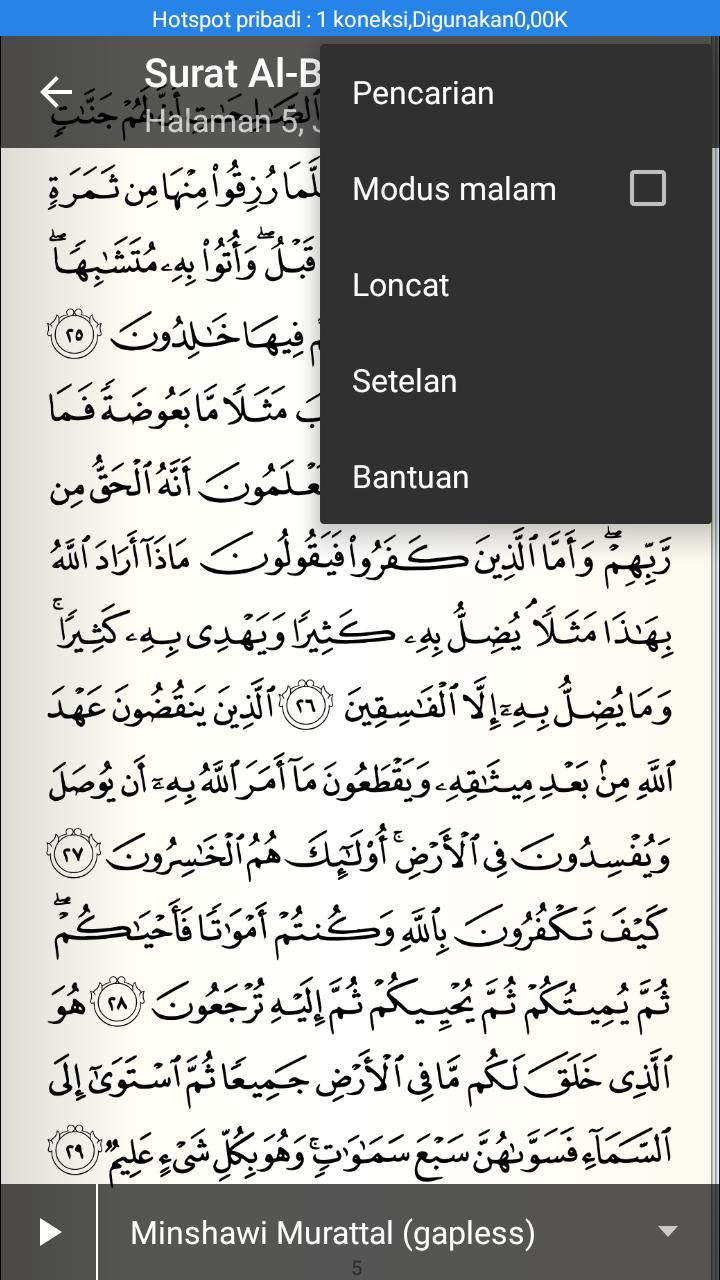 Hotspot pribadi : 1 koneksi,Digunakan0,00K
Surat Al-B
Halaman 5,
Pencarian
Modus malam
Loncat
Setelan
Bantuan
أَنَّ لَهُمْ جَنَّٰتٍ
رُزِقُوا۟ مِنْهَا مِن ثَمَرَةٍ
قَبْلُ ۖ وَأُتُوا۟ بِهِۦ مُتَشَٰبِهًا ۖ
فِيهَا خَٰلِدُونَ ٢٥
مَثَلًا مَّا بَعُوضَةً فَمَا
أَنَّهُ ٱلْحَقُّ مِن
رَّبِّهِمْ ۖ وَأَمَّا ٱلَّذِينَ كَفَرُوا۟ فَيَقُولُونَ مَاذَآ أَرَادَ ٱللَّهُ
بِهَٰذَا مَثَلًا ۘ يُضِلُّ بِهِۦ كَثِيرًا وَيَهْدِى بِهِۦ كَثِيرًا ۚ
وَمَا يُضِلُّ بِهِۦٓ إِلَّا ٱلْفَٰسِقِينَ ٢٦ ٱلَّذِينَ يَنقُضُونَ عَهْدَ
ٱللَّهِ مِنۢ بَعْدِ مِيثَٰقِهِۦ وَيَقْطَعُونَ مَآ أَمَرَ ٱللَّهُ بِهِۦٓ أَن يُوصَلَ
وَيُفْسِدُونَ فِى ٱلْأَرْضِ ۚ أُو۟لَٰٓئِكَ هُمُ ٱلْخَٰسِرُونَ ٢٧
كَيْفَ تَكْفُرُونَ بِٱللَّهِ وَكُنتُمْ أَمْوَٰتًا فَأَحْيَٰكُمْ ۖ
ثُمَّ يُمِيتُكُمْ ثُمَّ يُحْيِيكُمْ ثُمَّ إِلَيْهِ تُرْجَعُونَ ٢٨ هُوَ
ٱلَّذِى خَلَقَ لَكُم مَّا فِى ٱلْأَرْضِ جَمِيعًا ثُمَّ ٱسْتَوَىٰٓ إِلَى
ٱلسَّمَآءِ فَسَوَّىٰهُنَّ سَبْعَ سَمَٰوَٰتٍ ۚ وَهُوَ بِكُلِّ شَىْءٍ عَلِيمٌ ٢٩
Minshawi Murattal (gapless)
5